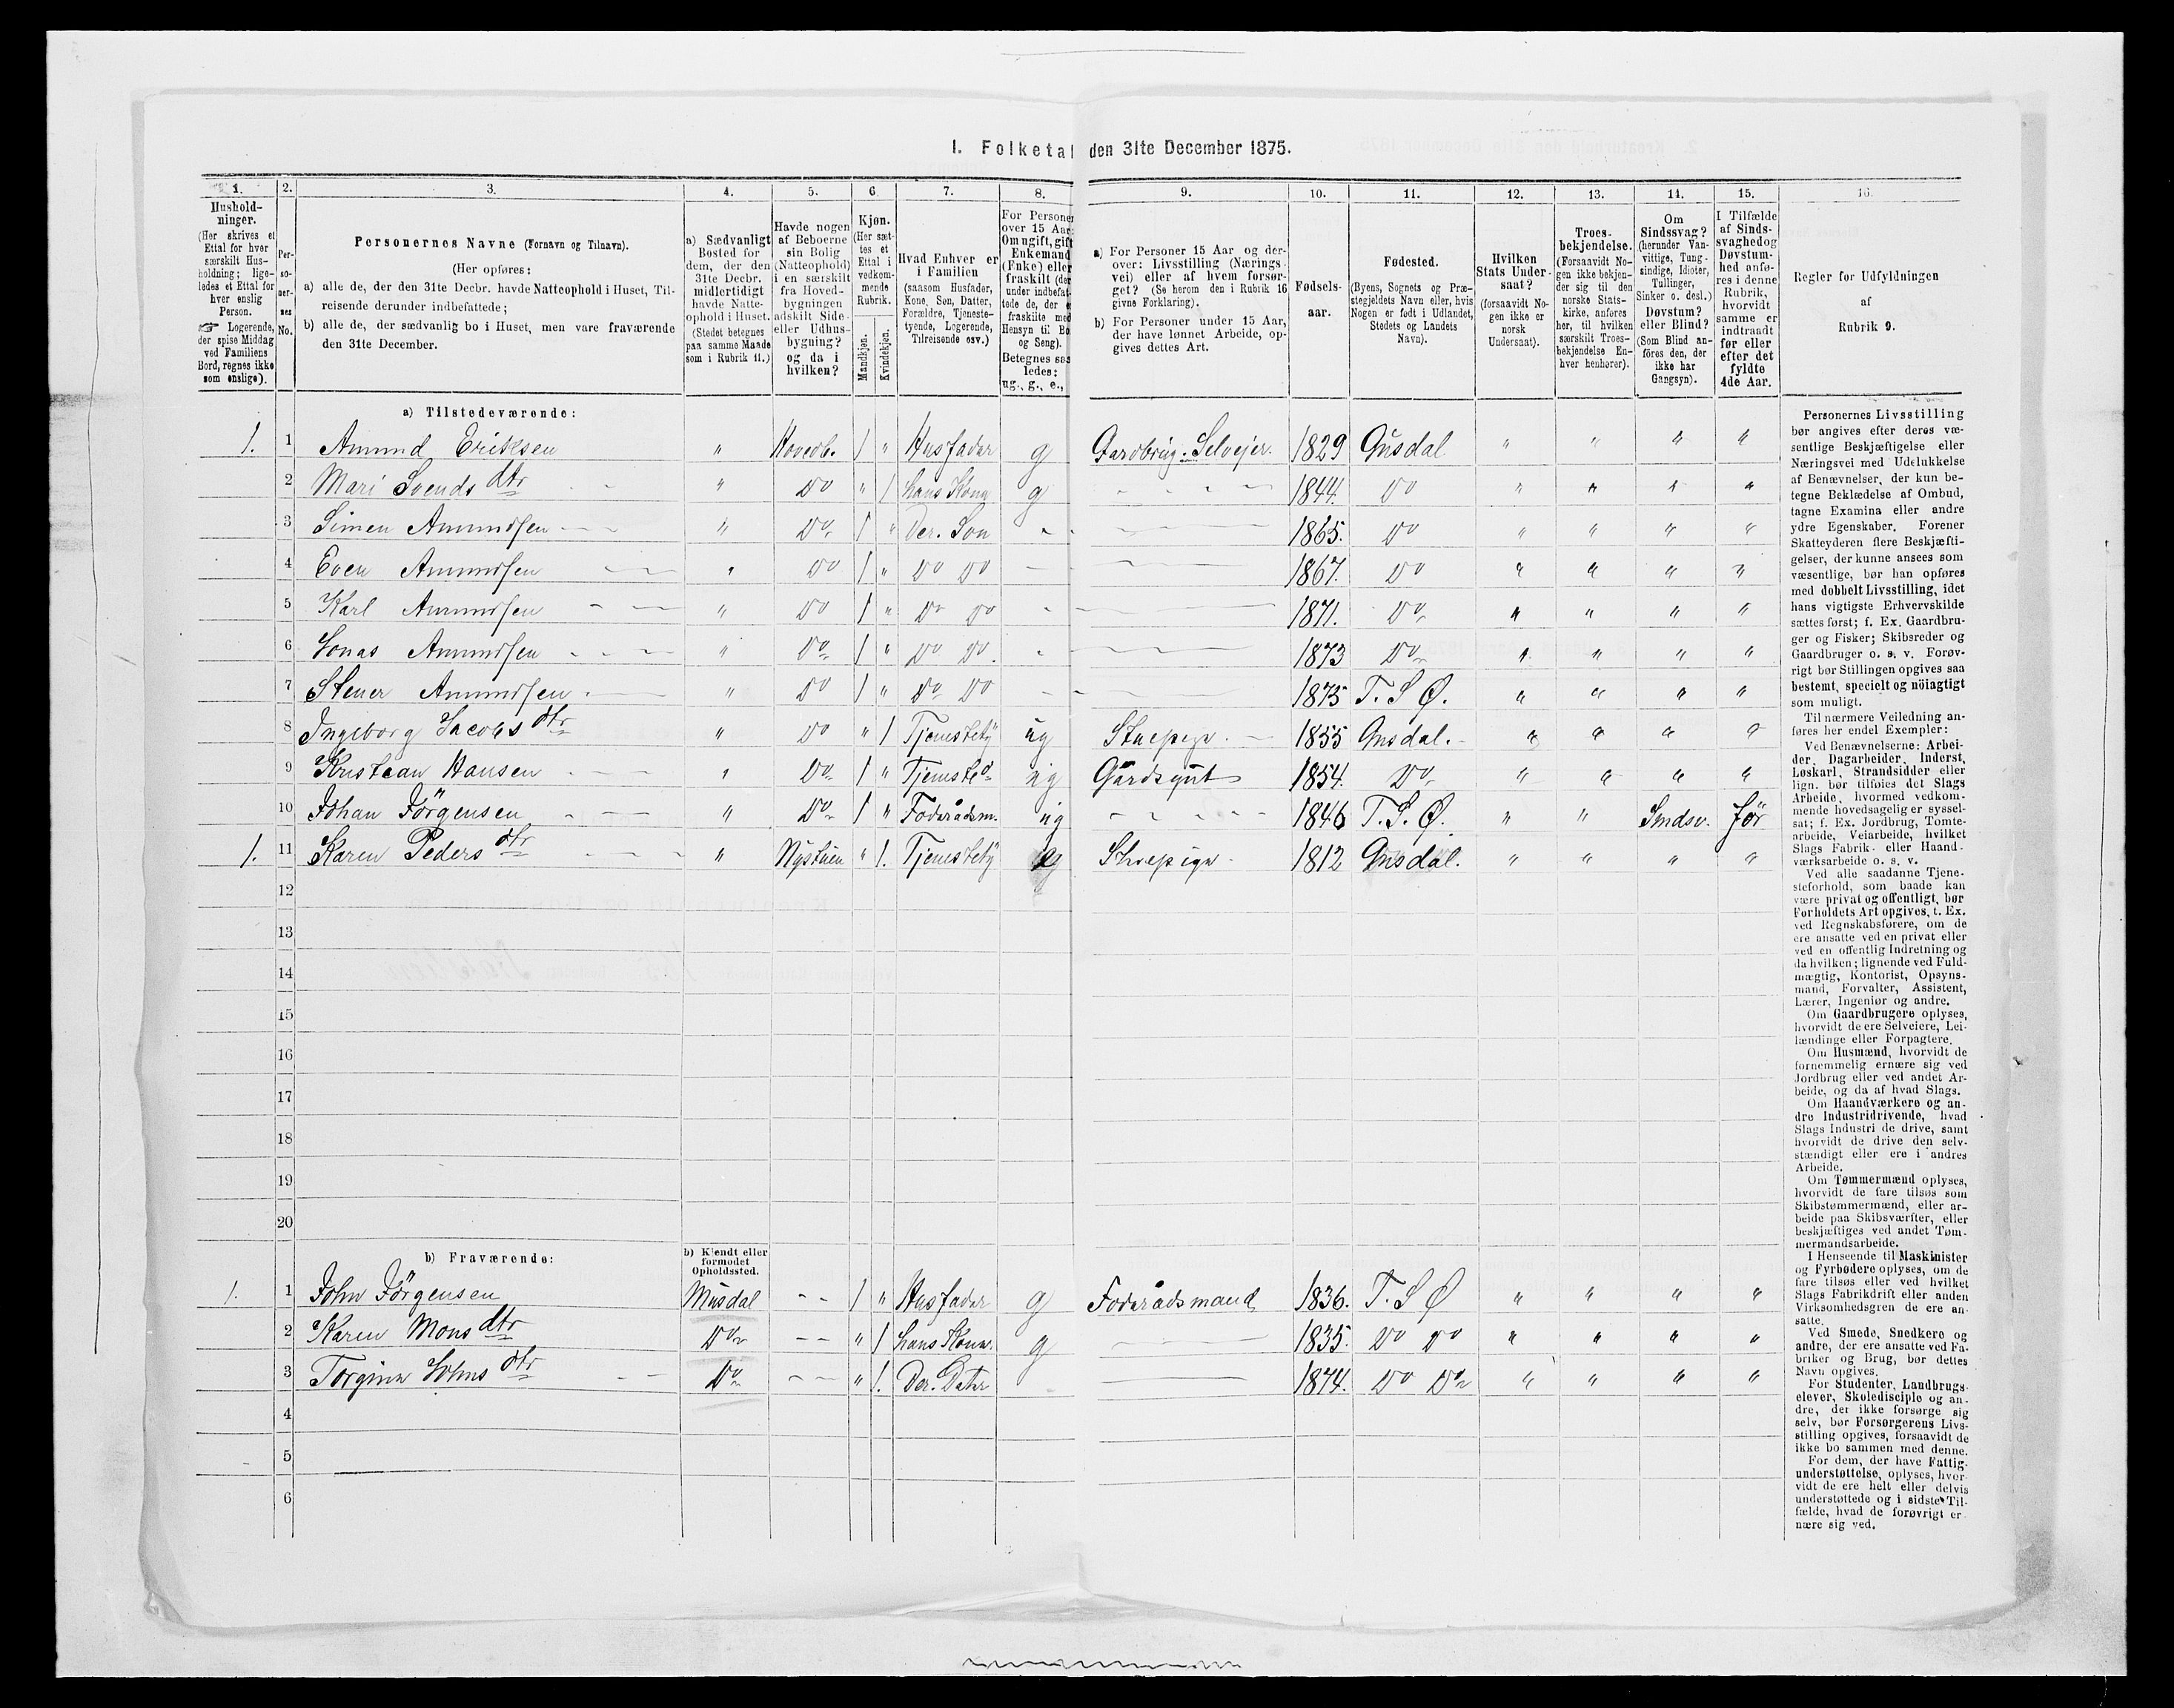 I. Folketal den 31te December 1875.
1. 2. 3. 4. 5. 6. 7. 8. 9. 10. 11. 12. 13. 14. 15. 16.
Hushold-
ninger.
(Her skrives et
Ettal for hver
særskilt Hus-
holdning; lige-
ledes et Ettal for
hver enslig
Person.
☞ Logerende,
der spise Middag
ved Familiens
Bord, regnes ikke
som enslige).
Per-
so-
ner-
nes
No.
Personernes Navne (Fornavn og Tilnavn).
(Her opføres:
a) alle de, der den 31te Decbr. havde Natteophold i Huset, Til-
reisende derunder indbefattede;
b) alle de, der sædvanlig bo i Huset, men vare fraværende
den 31te December.
a) Sædvanligt
Bosted for
dem, der den
31te Decbr.
midlertidigt
havde Natte-
ophold i Huset.
(Stedet betegnes
paa samme Maade
som i Rubrik 11.)
Havde nogen
af Beboerne
sin Bolig
(Natteophold)
i en særskilt
fra Hoved-
bygningen
adskilt Side-
eller Udhus-
bygning?
og da i
hvilken?
Kjøn.
(Her sæt-
tes et
Ettal i
vedkom-
mende
Rubrik.
Mandkjøn.
Kvindekjøn.
Hvad Enhver er
i Familien
(saasom Husfader,
Kone, Søn, Datter,
Forældre, Tjeneste-
tyende, Logerende,
Tilreisende osv.)
For Personer
over 15 Aar:
Om ugift, gift
Enkemand
(Enke) eller
fraskilt (der-
under indbefat-
tede de, der e
fraskilte med
Hensyn til Bo
og Seng).
Betegnes saa
ledes:
ug., g., e.,
a) For Personer 15 Aar og der-
over: Livsstilling (Nærings-
vei) eller af hvem forsør-
get? (Se herom den i Rubrik 16
givne Forklaring).
b) For Personer under 15 Aar,
der have lønnet Arbeide, op-
gives dettes Art.
Fødsels-
aar.
Fødested.
(Byens, Sognets og Præ-
stegjeldets Navn eller, hvis
Nogen er født i Udlandet,
Stedets og Landets
Navn).
Hvilken
Stats Under-
saat?
(forsaavidt No-
gen ikke er
norsk
Undersaat).
Troes-
bekjendelse.
(Forsaavidt No-
gen ikke bekjen-
der sig til den
norske Stats-
kirke, anføres
her, til hvilken
særskilt Troes-
bekjendelse En-
hver henhører).
Om
Sindssvag?
(herunder Van-
vittige, Tung-
sindige, Idioter,
Tullinger,
Sinker o. desl.)
Døvstum?
eller Blind?
(Som Blind an-
føres den, der
ikke har
Gangsyn).
I Tilfælde
af Sinds-
svaghed og
Døvstum-
hed anfø-
res i denne
Rubrik,
hvorvidt
samme er
indtraadt
før eller
efter det
fyldte
4de Aar.
Regler for Udfyldningen
af
Rubrik 9.
a) Tilstedeværende:
1. 1 Amund Eriksen " Hovedb. 1 " Husfader g Gardbrug. Selvejer. 1829 Gusdal " " " "
2 Mari Svends dtr " Do " 1 hans Kone g 1844. Do " " " "
3 Simen Amundsen " Do 1 " Der. Son 1865. Do " " " "
4 Even Amundsen " Do 1 " Do Do 1867. Do " " " "
5 Karl Amundsen " Do 1 " Do Do 1871. Do " " " "
6 Jonas Amundsen " Do 1 " Do Do. 1873 Do " " " "
7 Stener Amundsen " Do 1 " Do Do 1875 T. S Ø. " " " "
8 Ingeborg Jacobs dtr " Do " 1 Tjenestety ug Stuepige. 1855 Gusdal. " " " "
9 Kristian Hansen " Do 1 " ug Gårdsgut 1854. Do " " " "
10 Johan Jörgensen " Do 1 " Foderådsm. ug 1846 T. S. Ø. " " Sindsv. för
1. 11 Karen Peders dtr " Nystuen " 1. Tjenestety Stuepige 1812 Gusdal. " " " "
12
13
14
15
16
17
18
19
20
b) Fraværende:
b) Kjendt eller
formodet
Opholdssted.
1. 1 John Jörgensen Musdal 1 " Husfader g Foderådsmand 1836. T. S Ø " " " "
2 Karen Mons dtr Do " 1 hans Kone. g 1835. Do Do " " " "
3 Torgine Johns dtr Do " 1. Der. Dater 1874. Do Do " " " "
4
5
6
Personernes Livsstilling
bør angives efter deres væ-
sentlige Beskjæftigelse eller
Næringsvei med Udelukkelse
af Benævnelser, der kun be-
tegne Beklædelse af Ombud,
tagne Examina eller andre
ydre Egenskaber. Forener
Skatteyderen flere Beskjæfti-
gelser, der kunne ansees som
væsentlige, bør han opføres
med dobbelt Livsstilling, idet
hans vigtigste Erhvervskilde
sættes først; f. Ex. Gaardbru-
ger og Fisker; Skibsreder og
Gaardbruger o. s. v. Forøv-
rigt bør Stillingen opgives saa
bestemt, specielt og nöiagtigt
som muligt.
Til nærmere Veiledning an-
føres her endel Exempler:
Ved Benævnelserne: Arbei-
der, Dagarbeider, Inderst,
Løskarl, Strandsidder eller
lign. bør tilføies det Slags
Arbeide, hvormed vedkom-
mende hovedsagelig er syssel-
sat; f. Ex. Jordbrug, Tomte-
arbeide, Veiarbeide, hvilket
Slags Fabrik- eller Haand-
værksarbeide o. s. v.
Ved alle saadanne Tjene-
steforhold, som baade kan
være privat og offentligt, bør
Forholdets Art opgives, t. Ex.
ved Regnskabsførere, om de
ere ansatte ved en privat eller
ved en offentlig Indretning og
da hvilken; lignende ved Fuld-
mægtig, Kontorist, Opsyns-
mand, Forvalter, Assistent,
Lærer, Ingeniør og andre.
Om Gaardbrugere oplyses,
hvorvidt de ere Selveiere, Lei-
lændinge eller Forpagtere.
Om Husmænd, hvorvidt de
fornemmelig ernære sig ved
Jordbrug eller ved andet Ar-
beide, og da af hvad Slags.
Om Haandværkere og an-
dre Industridrivende, hvad
Slags Industri de drive, samt
hvorvidt de drive den selv-
stændigt eller ere i andres
Arbeide.
Om Tømmermænd oplyses,
hvorvidt de fare tilsøs som
Skibstømmermænd, eller ar-
beide paa Skibsværfter, eller
beskjæftiges ved andet Tøm-
mermandsarbeide.
I Henseende til Maskinister
og Fyrbødere oplyses, om de
fare tilsøs eller ved hvilket
Slags Fabrikdrift eller anden
Virksomhedsgren de ere an-
satte.
Ved Smede, Snedkere og
andre, der ere ansatte ved Fa-
briker og Brug, bør dettes
Navn opgives.
For Studenter, Landbrugs-
elever, Skoledisciple og an-
dre, der ikke forsørge sig
selv, bør Forsørgerens Livs-
stilling opgives, forsaavidt de
ikke bo sammen med denne.
For dem, der have Fattig-
understøttelse, oplyses, hvor-
vidt de ere helt eller delvis
understøttede og i sidste Til-
fælde, hvad de forøvrigt er-
nære sig ved.